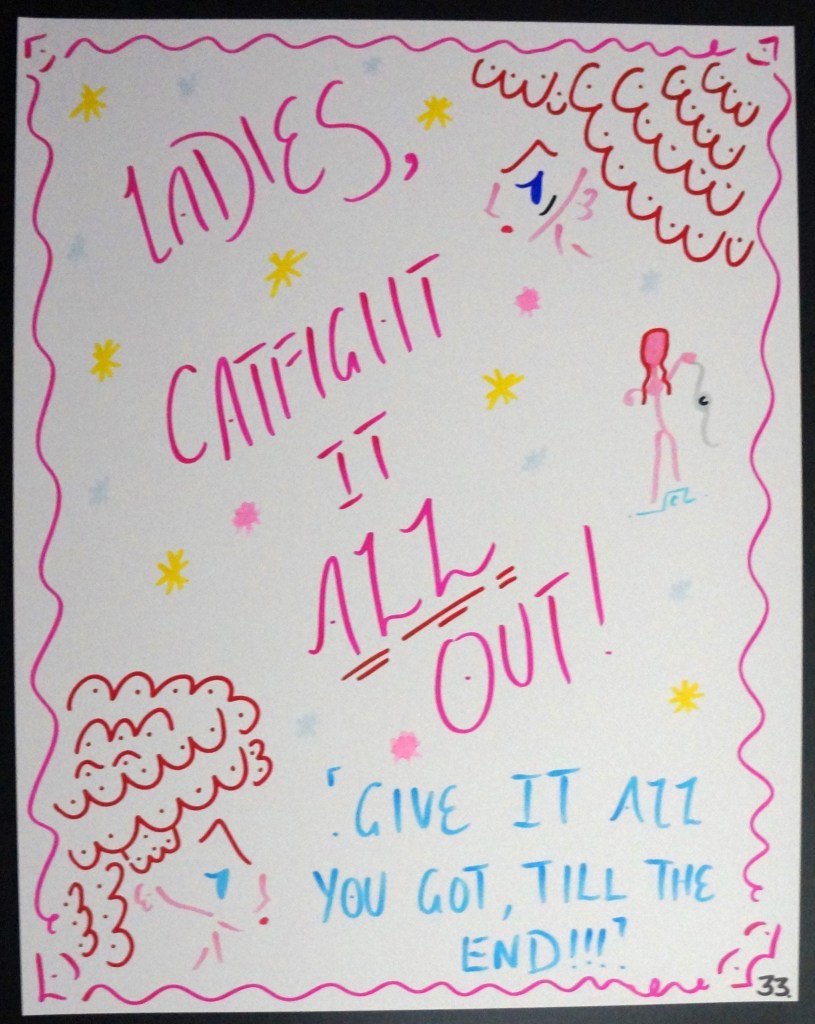 LADIES,
CATFIGHT
IT
ALL
OUT!
'GIVE IT ALL
YOU GOT, TILL THE
END!!!'
33.